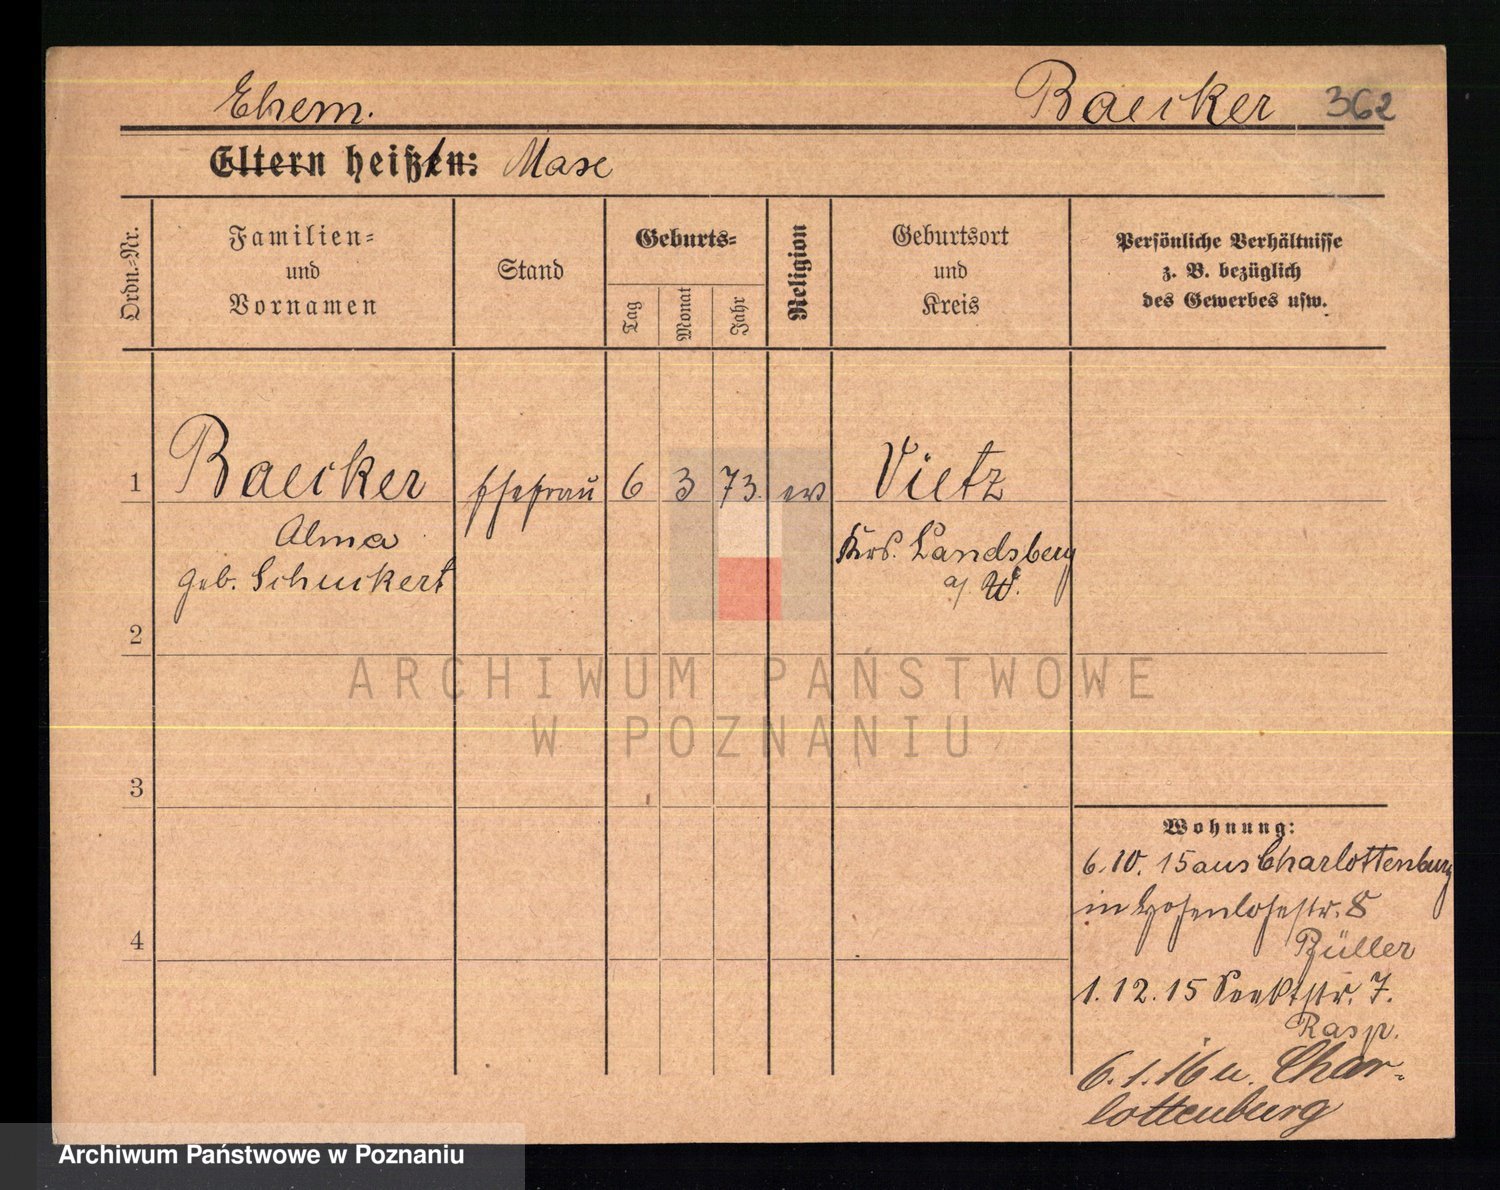 Ehem.
Baecker 362
Eltern heißen: Maxe
Ordn.-Nr.
Familien-
und
Vornamen
Stand
Geburts-
Tag
Monat
Jahr
Religion
Geburtsort
und
Kreis
Persönliche Verhältnisse
z. B. bezüglich
des Gewerbes usw.
1 Baecker Ehefrau 6 3 73. ev Vietz
Alma
geb. Schuckert
Krs. Landsberg
a/ W.
2
3
4
ARCHIWUM PAŃSTWOWE
W POZNANIU
Wohnung:
6.10.15 aus Charlottenburg
in Hohenlohestr. 8
Büller
1.12.15 7.
Rasp.
6.1.16 n. Char-
lottenburg
Archiwum Państwowe w Poznaniu